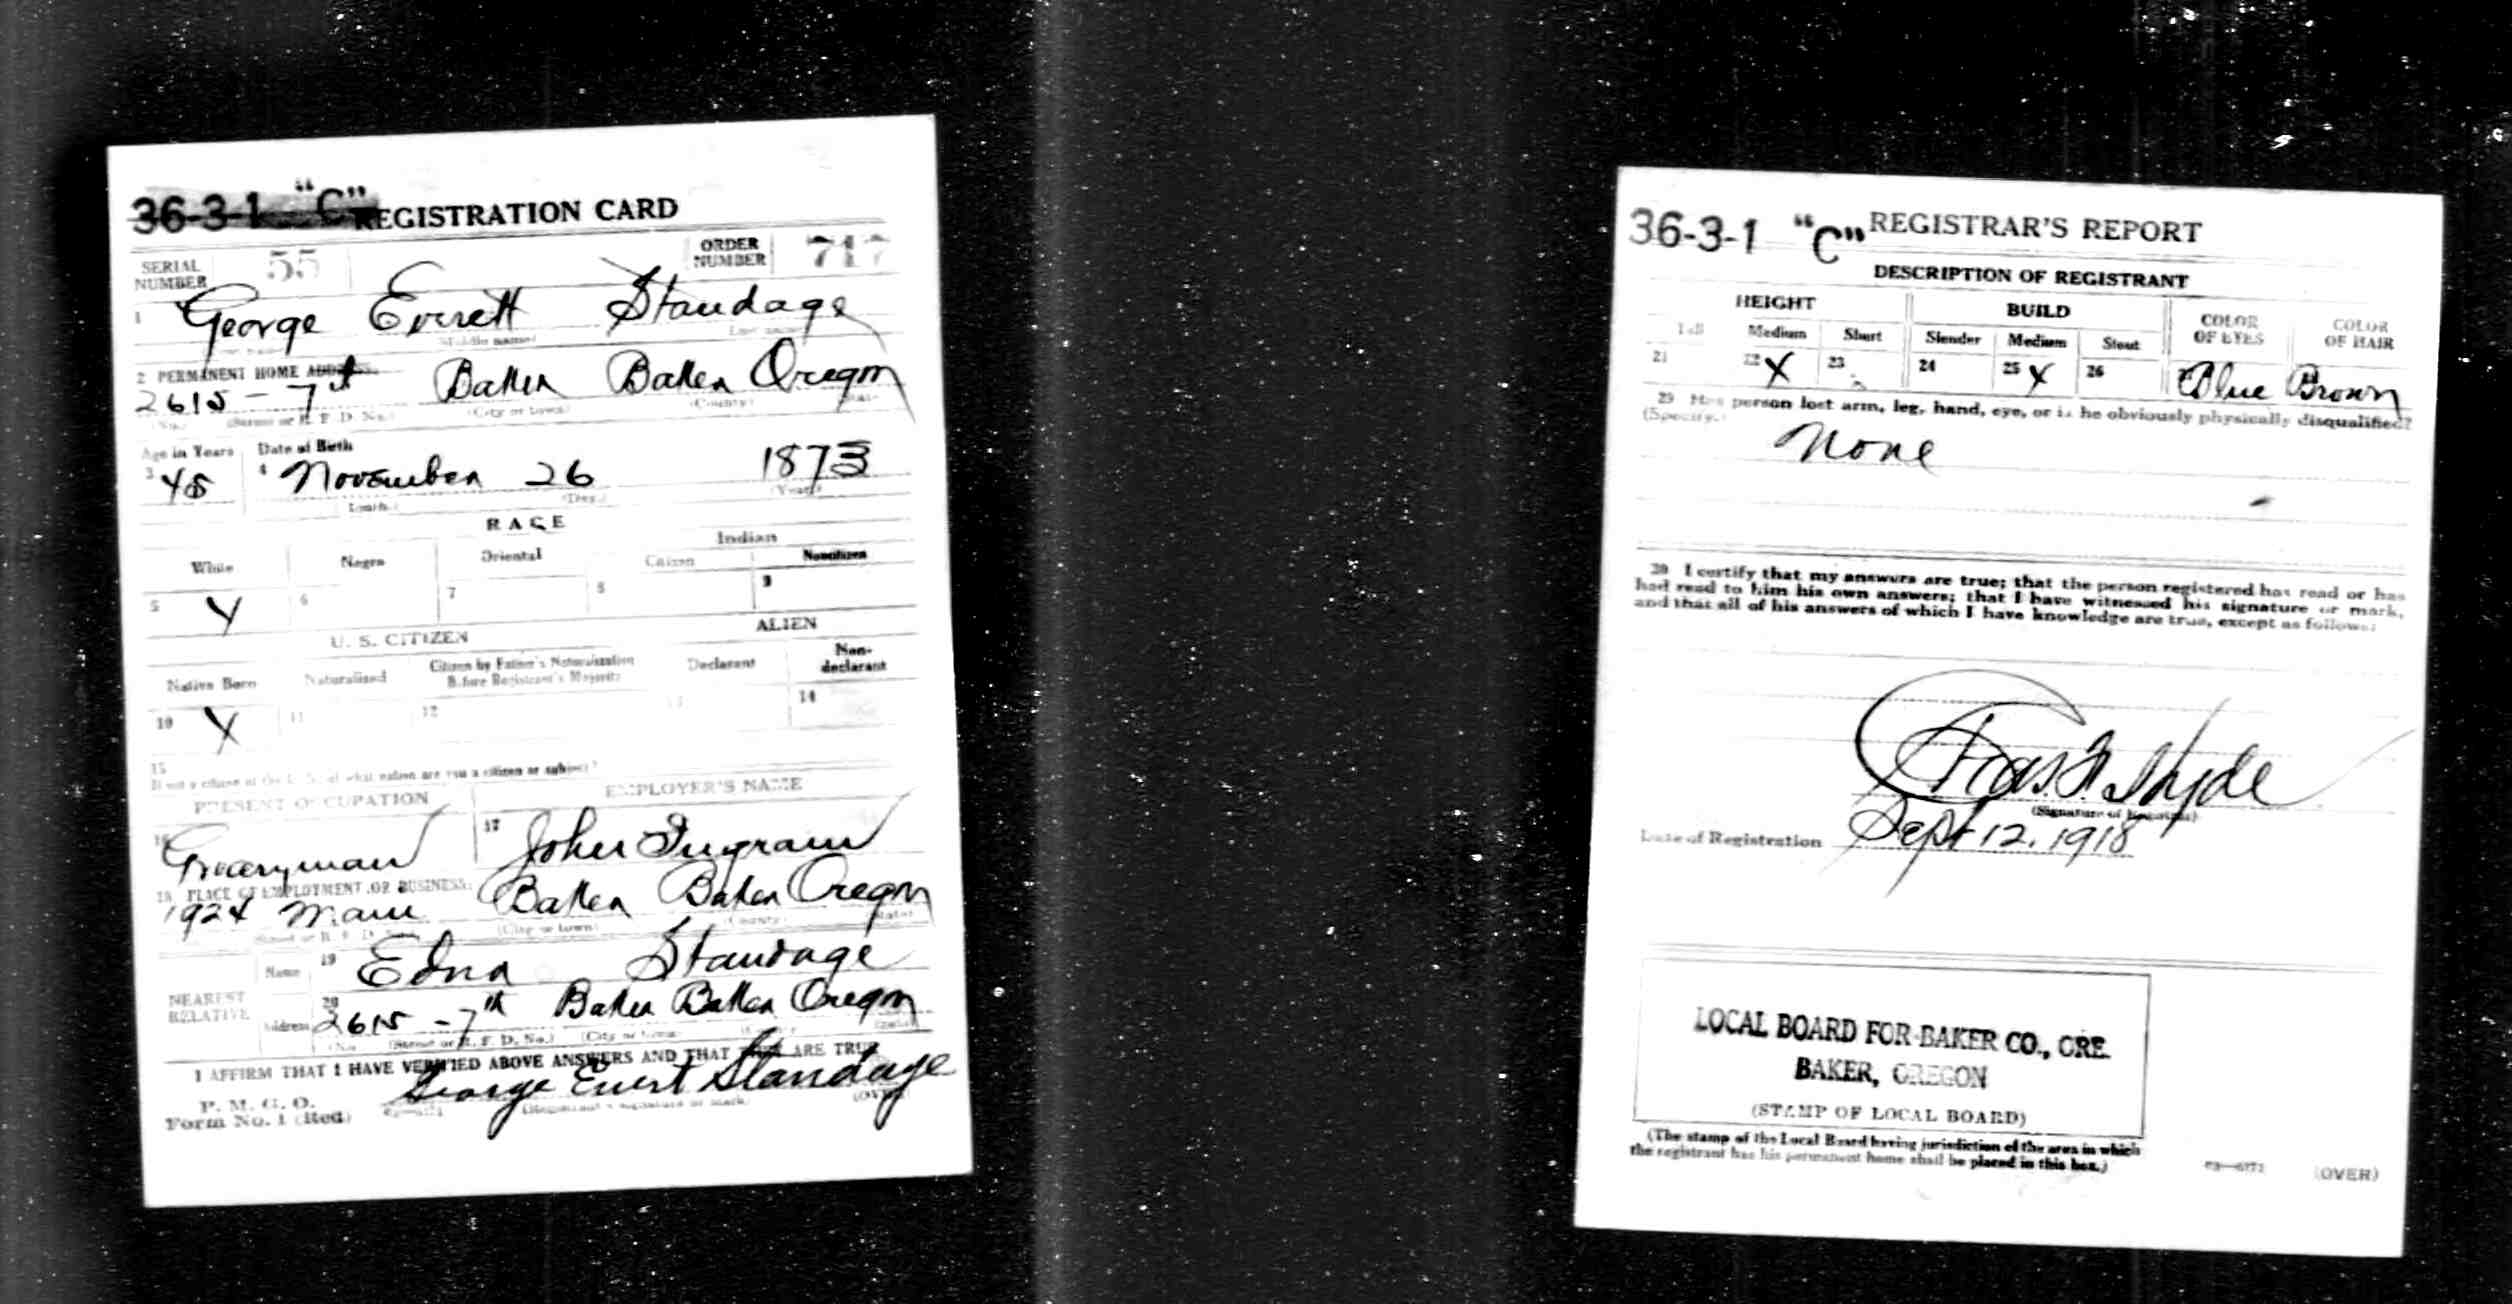 36-3-1 "C" REGISTRATION CARD
SERIAL NUMBER 55 ORDER NUMBER 717
1 George Everett Standage
(Middle name) (Last name)
2 PERMANENT HOME ADDRESS:
2615 - 7th Baker Baker Oregon
(No.) (Street or R. F. D. No.) (City or town) (County) (State)
Age in Years Date of Birth
3 45 4 November 26 1873
(Month.) (Day.) (Year)
RACE
White Negro Oriental Indian
Citizen Noncitizen
5 X 6 7 8 9
U. S. CITIZEN ALIEN
Native Born Naturalized Citizen by Father's Naturalization Before Registrant's Majority Declarant Non-declarant
10 X 11 12 13 14
15
If not a citizen of the U. S., of what nation are you a citizen or subject?
PRESENT OCCUPATION EMPLOYER'S NAME
16 Groceryman 17 John Ingram
18 PLACE OF EMPLOYMENT OR BUSINESS:
1924 Main Baker Baker Oregon
(Street or R. F. D. No.) (City or town) (County) (State)
NEAREST RELATIVE
Name 19 Edna Standage
Address 20 2615 - 7th Baker Baker Oregon
(No.) (Street or R. F. D. No.) (City or town) (State)
I AFFIRM THAT I HAVE VERIFIED ABOVE ANSWERS AND THAT THEY ARE TRUE
P. M. G. O.
Form No. 1 (Red) George Evert Standage
(Registrant's signature or mark) (OVER)
36-3-1 "C" REGISTRAR'S REPORT
DESCRIPTION OF REGISTRANT
HEIGHT BUILD COLOR OF EYES COLOR OF HAIR
Tall Medium Short Slender Medium Stout
21 22 X 23 24 25 X 26 Blue Brown
29 Has person lost arm, leg, hand, eye, or is he obviously physically disqualified?
(Specify.)
None
30 I certify that my answers are true; that the person registered has read or has
had read to him his own answers; that I have witnessed his signature or mark,
and that all of his answers of which I have knowledge are true, except as follows:
Hyde
(Signature of Registrar)
Date of Registration Sept 12, 1918
LOCAL BOARD FOR BAKER CO., ORE.
BAKER, OREGON
(STAMP OF LOCAL BOARD)
(The stamp of the Local Board having jurisdiction of the area in which
the registrant has his permanent home shall be placed in this box.)
03—6171 (OVER)